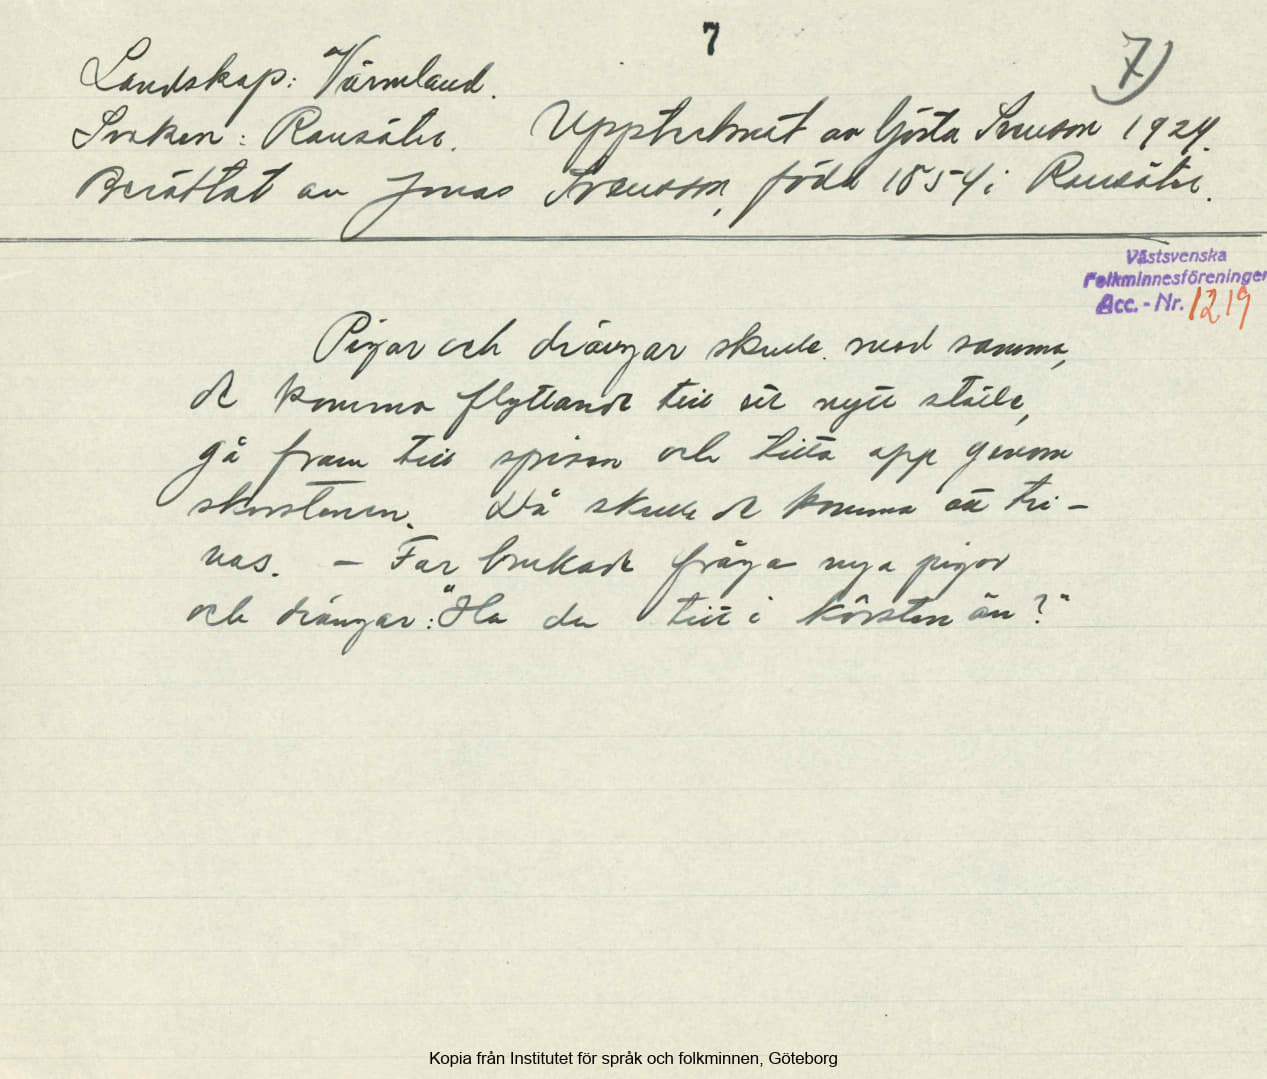 7
7)
Landskap: Värmland.
Socken: Ransäter. Upptecknat av Gösta Svenson 1924.
Berättat av Jonas Svensson, född 1854 i Ransäter.
Västsvenska
Folkminnesföreningen
Acc. - Nr. 1219
Pigor och drängar skulle med samma,
de komma flyttande till ett nytt ställe,
gå fram till spisen och titta opp genom
skorstenen. Då skulle de komma att tri-
vas. – Far brukade fråga nya pigor
och drängar: "Ha du titt i kôrsten än?"
Kopia från Institutet för språk och folkminnen, Göteborg